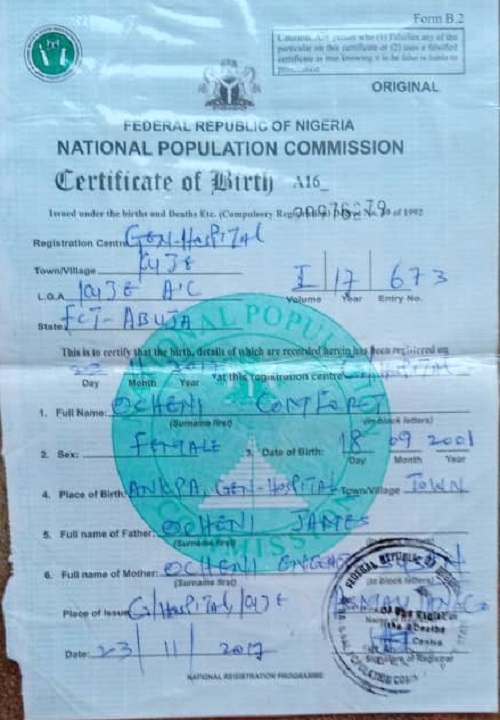 Form B.2
Caution: Any person who (1) Falsifies any of the
particular on this certificate or (2) uses a falsified
certificate as true knowing it to be false is liable to
ORIGINAL
FEDERAL REPUBLIC OF NIGERIA
NATIONAL POPULATION COMMISSION
Certificate of Birth A16_
Issued under the births and Deaths Etc. (Compulsory of 1992
Registration Centre GEN-HOSPITAL
Town/Village KUJE
L.G.A KUJE A/C
I 17 673
Volume Year Entry No.
State FCT-ABUJA
This is to certify that the birth, details of which are recorded herein has been registered on
Day Month Year at this registration centre
1. Full Name: OCHENI COMFORT
(Surname first) (in block letters)
2. Sex: FEMALE 3. Date of Birth: 18 09 2001
Day Month Year
4. Place of Birth: ANKPA, GEN-HOSPITAL Town/Village TOWN
5. Full name of Father: OCHENI JAMES
(Surname first)
6. Full name of Mother: OCHENI
(Surname first) (in block letters)
Place of Issue G/HOSPITAL, KUJE
Date: 23/11/2017
Signature of Registrar
NATIONAL REGISTRATION PROGRAMME